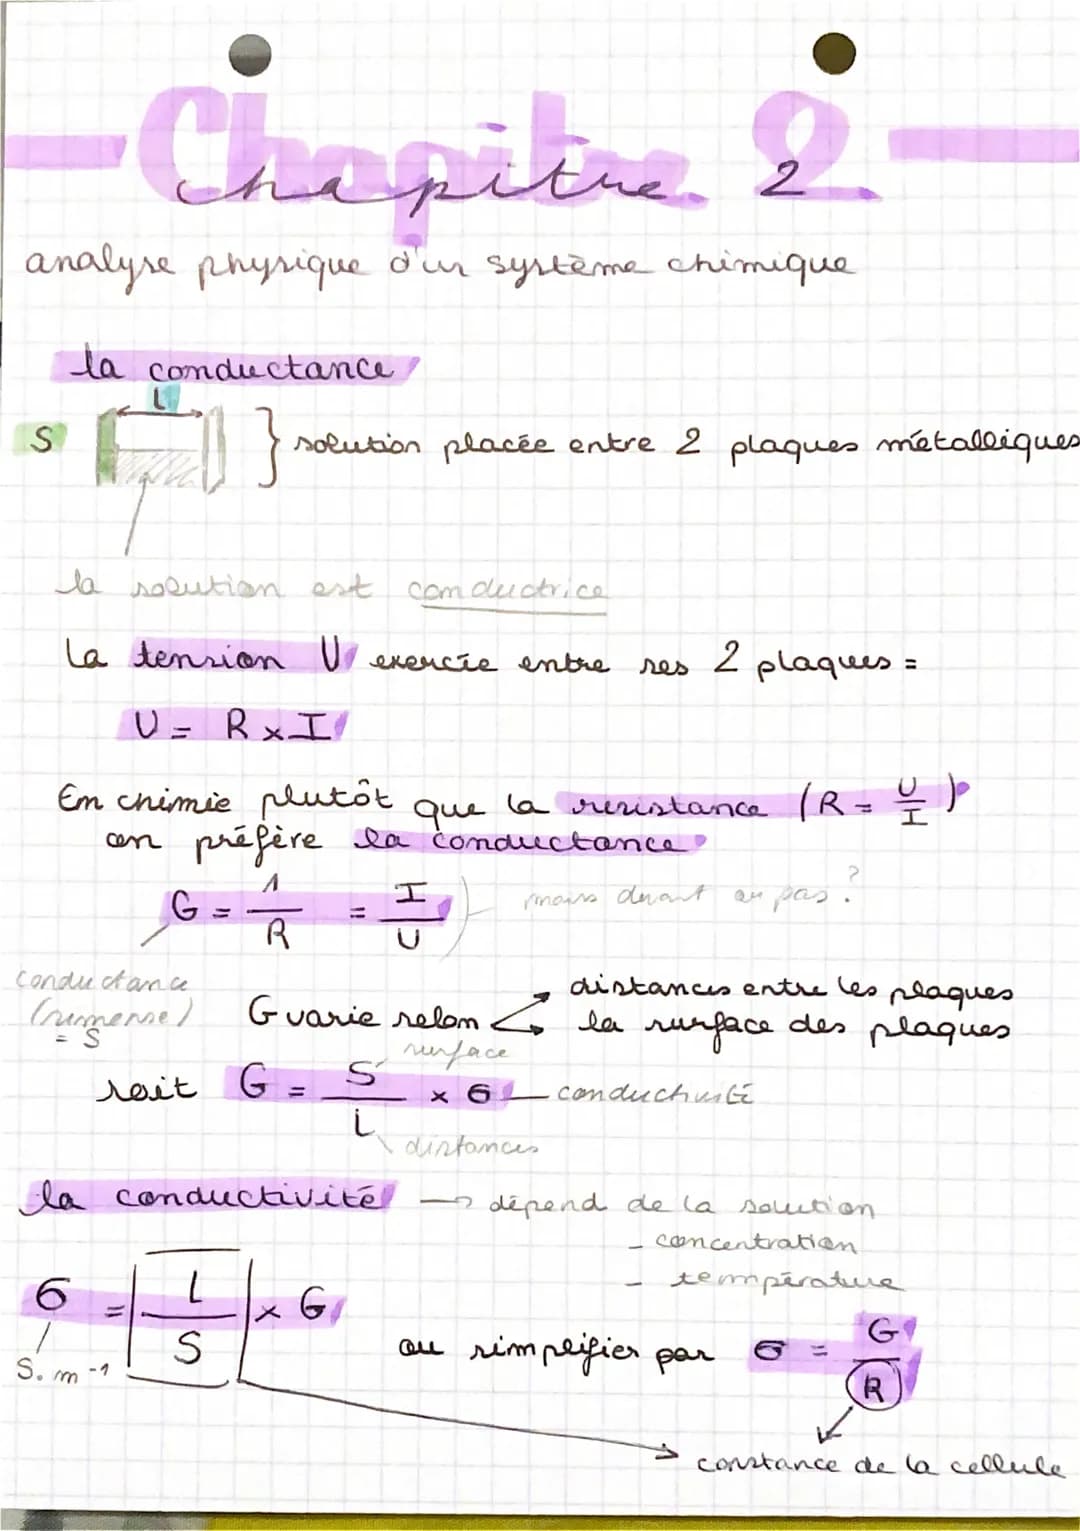 Chapitre 2
Chapitre 2
analyse physique d'un système chimique
la conductance
L
S
solution placée entre 2 plaques métalliques
la solution est conductrice
la tension U exercée entre ses 2 plaques =
U = R x I
En chimie plutôt que la resistance (R = U/I)
on préfère la conductance
G = 1/R = I/U
mais durant ou pas ?
conductance
(siemense)
= S
G varie selon
distances entre les plaques
la surface des plaques
surface
soit G = S/L x σ conductivité
distances
la conductivité → dépend de la solution
- concentration
- température
σ = L/S x G
S.m-1
ou simplifier par σ = G/R
constance de la cellule